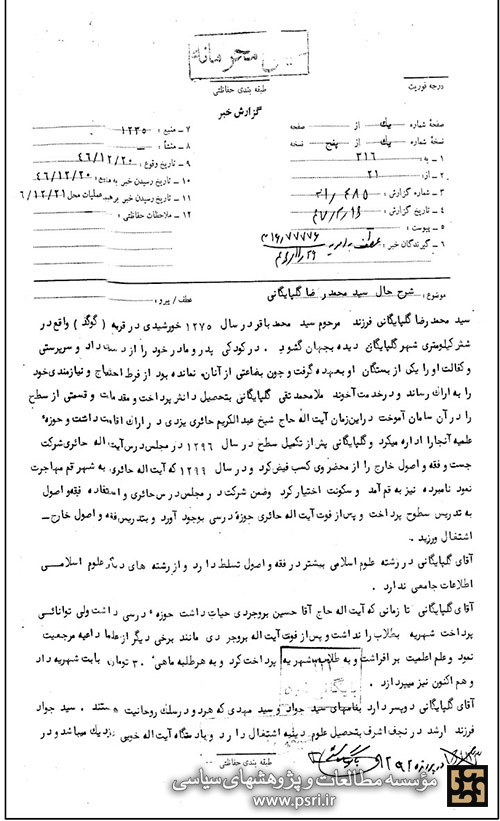 خیلی محرمانه
طبقه بندی حفاظتی
درجه فوریت
گزارش خبر
صفحه شماره یك از صفحه
نسخه شماره یك از پنج نسخه
۱ - به : ۳۱۶
۲ - از : ۲۱
۳ - شماره گزارش :
۴ - تاریخ گزارش :
۵ - پیوست :
۶ - گیرندگان خبر :
۷ - منبع : ۱۲۳۵
۸ - منشأ :
۹ - تاریخ وقوع : ۴۶/۱۲/۲۰
۱۰ - تاریخ رسیدن خبر به منبع : ۴۶/۱۲/۲۰
۱۱ - تاریخ رسیدن خبر برهبر عملیات محل
۱۲ - ملاحظات حفاظتی :
موضوع : شرح حال سید محمد رضا گلپایگانی
عطف / پیرو :
سید محمد رضا گلپایگانی فرزند مرحوم سید محمد باقر در سال ۱۲۷۵ خورشیدی در قریه ( گوگد ) واقع در
شش کیلومتری شهر گلپایگان دیده بجهان گشود . در کودکی پدر و مادر خود را از دست داد و سرپرستی
و کفالت او را یکی از بستگان او بعهده گرفت و چون بضاعتی از آنان نمانده بود از فرط احتیاج و نیازمندی خود
را به اراك رساند و در خدمت آخوند ملا محمد تقی گلپایگانی بتحصیل دانش پرداخت و مقدمات و قسمتی از سطح
را در آن سامان آموخت در این زمان آیت اله حاج شیخ عبدالکریم حائری یزدی در اراك اقامت داشت و حوزه
علمیه آنجا را اداره میکرد و گلپایگانی پس از تکمیل سطح در سال ۱۲۹۶ در مجلس درس آیت اله حائری شرکت
جست و فقه و اصول خارج را از محضر وی کسب فیض کرد و در سال ۱۲۹۹ که آیت اله حائری به شهر قم مهاجرت
نمود نامبرده نیز به قم آمد و سکونت اختیار کرد وضمن شرکت در مجلس درس حائری و استفاده فقه و اصول
به تدریس سطوح پرداخت و پس از فوت آیت اله حائری حوزه درسی بوجود آورد و بتدریس فقه و اصول خارج
اشتغال ورزید .
آقای گلپایگانی در رشته علوم اسلامی بیشتر در فقه و اصول تسلط دارد و از رشته های دیگر علوم اسلامی
اطلاعات جامعی ندارد .
آقای گلپایگانی تا زمانی که آیت اله حاج آقا حسین بروجردی حیات داشت حوزه درسی داشت ولی توانائی
پرداخت شهریه بطلاب را نداشت و پس از فوت آیت اله بروجردی مانند برخی دیگر از علما داعیه مرجعیت
نمود وعلم اعلمیت بر افراشت و به طلاب شهریه پرداخت کرد و به هر طلبه ماهی ۳۰ تومان بابت شهریه داد
و هم اکنون نیز میپردازد .
آقای گلپایگانی دو پسر دارد بنامهای سید جواد و سید مهدی که هر دو در سلك روحانیت هستند . سید جواد
فرزند ارشد در نجف اشرف بتحصیل علوم دینیه اشتغال دارد و با دستگاه آیت اله خویی نزدیك میباشد و در
طبقه بندی حفاظتی
مؤسسه مطالعات و پژوهشهای سیاسی
www.psri.ir